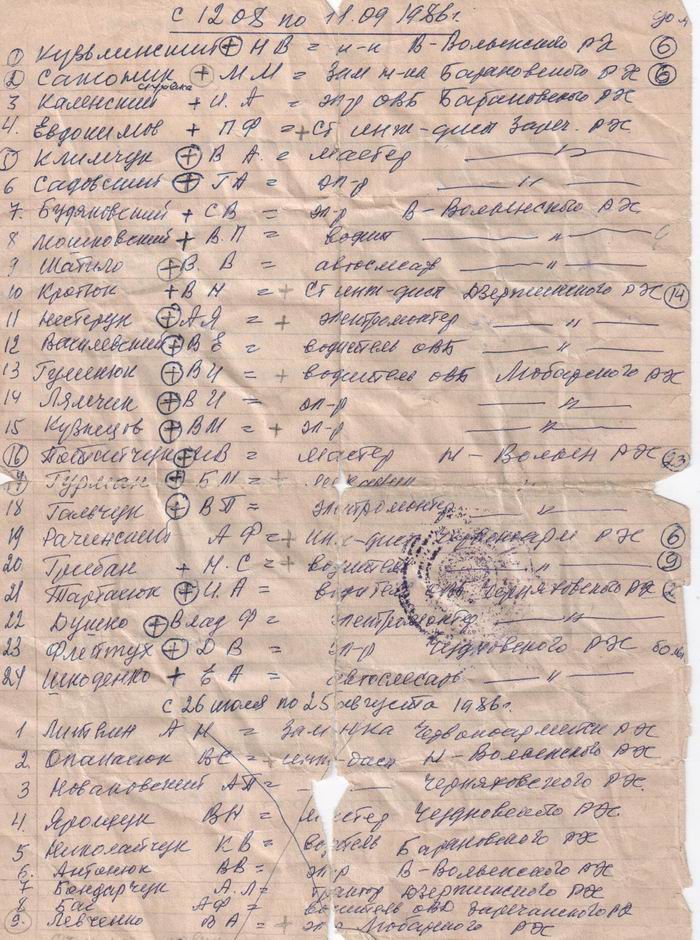 с 12 08 по 11.09 1986г.
1 Кузьлинский + Н В = н-к В-Волынского РЭС 6
2 Сажотик + М М = Зам н-ка Барановского РЭС 6
справка
3 Каленский + И. А = эл-р ОВБ Барановского РЭС
4. Евдокимов + П Ф = + Ст инж-дисп Зареч. РЭС
5 Климчук + В А. = мастер — " —
6 Садовский + Г А = эл-р — " —
7. Будяковский + С В = эл-р В-Волынского РЭС
8 Мошковский + В. П = водит — " —
9 Шатило + В. В = автослесарь — " —
10 Кротюк + В Н = + Ст инж-дисп Дзержинского РЭС 14
11 Нестерук + А Я = + электромонтер — " —
12 Василевский + В Е = водитель ОВБ — " —
13 Гуменюк + В И = + водитель ОВБ Любарского РЭС
14 Лямчик + В И = эл-р — " —
15 Кузнецов + В М = + эл-р — " —
16 + В = мастер Н-Волын РЭС 23
17 Гурман + Б М = +
18 Гальчук + В П = электромонтер — " —
19 Рачинский А Ф = + инж-дисп РЭС 6
20 Грибан + Н. С = + водитель — " — 9
21 + И. А = водитель ОВБ Черняховского РЭС
22 Душко + Влад Ф = электромонтер — " —
23 + Д В = эл-р Чудновского РЭС
24 Шкоденко + Е А = автослесарь — " —
с 26 июля по 25 августа 1986г.
1 Литвин А Н = Зам н-ка Червоноармейск РЭС
2. Опанасюк В С = + инж-дисп Н-Волынского РЭС
3 Новаковский А П = — Черняховского РЭС.
4. Ярощук В Н = мастер Чудновского РЭС
5 Николайчук К В = водитель Барановского РЭС
6. Антонюк В В = эл-р В-Волынского РЭС
7 Бондарчук А. Л = Дзержинского РЭС
8 Бас А Ф = водитель ОВБ Заречанского РЭС
9. Левченко В А = + эл-р Любарского РЭС